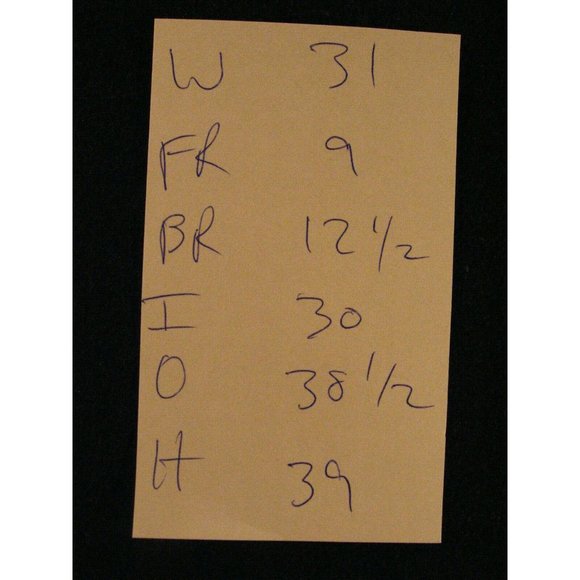 W 31
FR 9
BR 12 1/2
I 30
O 38 1/2
H 39